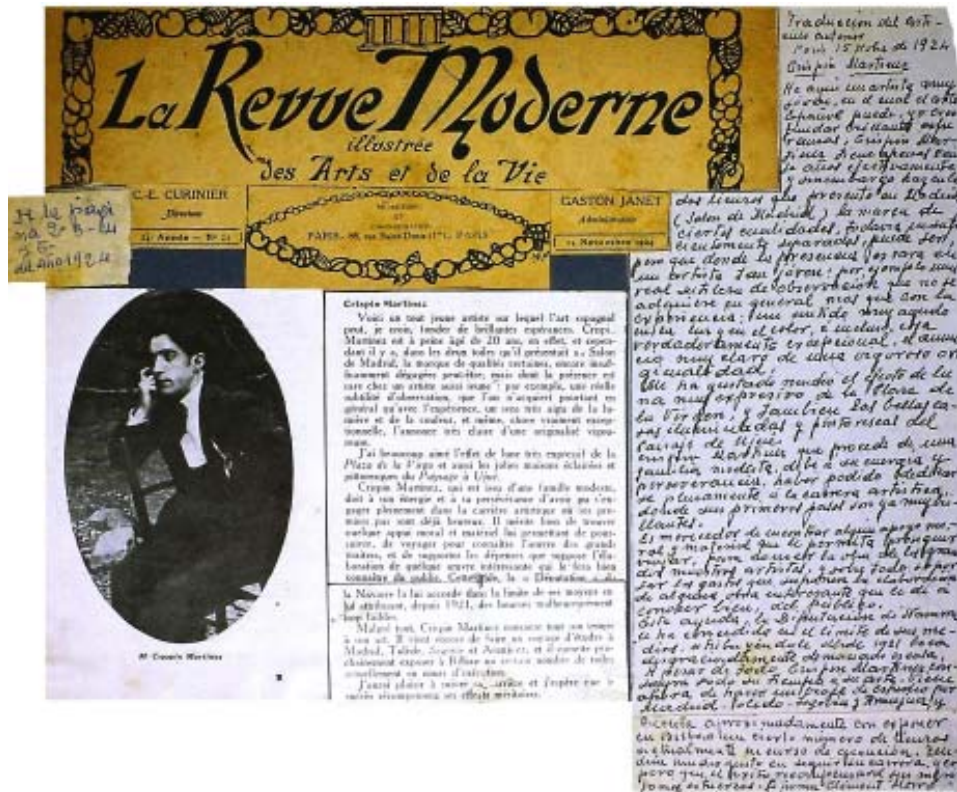 La Revue Moderne
illustrée
des Arts et de la Vie
C.-E. CURINIER
Directeur
GASTON JANET
Administrateur
PARIS
24e Année
15 Novembre 1924
del año 1924
Crispin Martinez
Voici un tout jeune artiste sur lequel l'art espagnol
peut, je crois, fonder de brillantes espérances. Crispin
Martinez est à peine âgé de 20 ans, en effet, et cepen-
dant il y a, dans les deux toiles qu'il présentait au Salon
de Madrid, la marque de qualités certaines, encore insuf-
fisamment dégagées peut-être, mais dont la présence est
rare chez un artiste aussi jeune : par exemple, une réelle
subtilité d'observation, que l'on n'acquiert pourtant en
général qu'avec l'expérience, un sens très aigu de la lu-
mière et de la couleur, et même, chose vraiment excep-
tionnelle, l'annonce très claire d'une originalité vigou-
reuse.
J'ai beaucoup aimé l'effet de lune très expressif de la
Plaza de la et aussi les jolies maisons éclairées et
pittoresques du Paysage à
Crispin Martinez, qui est issu d'une famille modeste,
doit à son énergie et à sa persévérance d'avoir pu s'en-
gager pleinement dans la carrière artistique où ses pre-
miers pas sont déjà heureux. Il mérite bien de trouver
quelque appui moral et matériel lui permettant de pour-
suivre, de voyager pour connaître l'œuvre des grands
maîtres, et de supporter les dépenses que suppose l'éla-
boration de quelque œuvre intéressante qui le fera bien
connaître du public. Cette aide, la « Députation » de
la Navarre la lui accorde dans la limite de ses moyens en
lui attribuant, depuis 1921, des bourses malheureusement
trop faibles.
Malgré tout, Crispin Martinez consacre tout son temps
à son art. Il vient encore de faire un voyage d'études à
Madrid, Tolède, Ségovie et Aranjuez, et il compte pro-
chainement exposer à Bilbao un certain nombre de toiles
actuellement en cours d'exécution.
J'aurai plaisir à suivre sa carrière et j'espère que le
succès récompensera ses efforts méritoires.
M. Crispin Martinez
Traduccion del
Paris 15 de 1924
Crispin Martinez
He aqui un artista muy
joven, en el cual el arte
Español puede, yo creo
fundar brillantes espe-
ranzas, Crispin Mar-
tinez
años efectivamente
y sin embargo hay en los
dos lienzos que presento en Madrid
(Salon de Madrid) la marca de
ciertas cualidades, todavia insufi-
cientemente separadas, puede ser,
pero que donde la presencia es rara en
un artista tan joven: por ejemplo una
real sutileza de observación que no se
adquiere en general mas que con la
experiencia; un sentido muy agudo
en la luz y en el color, e incluso, cosa
verdaderamente excepcional, el anun-
cio muy claro de una vigorosa ori-
ginalidad.
Me ha gustado mucho el efecto de lu-
na muy expresivo de la Plaza de
la Virgen, y tambien las bellas ca-
sas iluminadas y pintorescas del
Paisaje de
Crispin Martinez que procede de una
familia modesta, debe a su energia y
perseverancia, haber podido dedicar
se plenamente a la carrera artistica,
donde sus primeros pasos son ya muy bri-
llantes.
Es merecedor de encontrar algun apoyo mo-
ral y material que le permita proseguir
viajar, para conocer la obra de los gran
des maestros artistas, y sobre todo, sopor
tar los gastos que suponen la elaboracion
de alguna obra interesante que le dé a
conocer bien, del público.
Esta ayuda, la Diputacion de Navarra
le ha concedido en el limite de sus me-
dios, atribuyendole desde 1921 becas
desgraciadamente demasiado
A pesar de todo Crispin Martinez con-
sagra todo su tiempo a su arte. Viene
ahora de hacer un viaje de estudio por
Madrid, Toledo, Segovia y Aranjuez, y
cuenta aproximadamente con exponer
en Bilbao un cierto número de lienzos
actualmente en curso de ejecución. Ten-
dré mucho gusto en seguir su carrera, y es
pero que el éxito recompensará sus meri
torios esfuerzos. Firma Clément